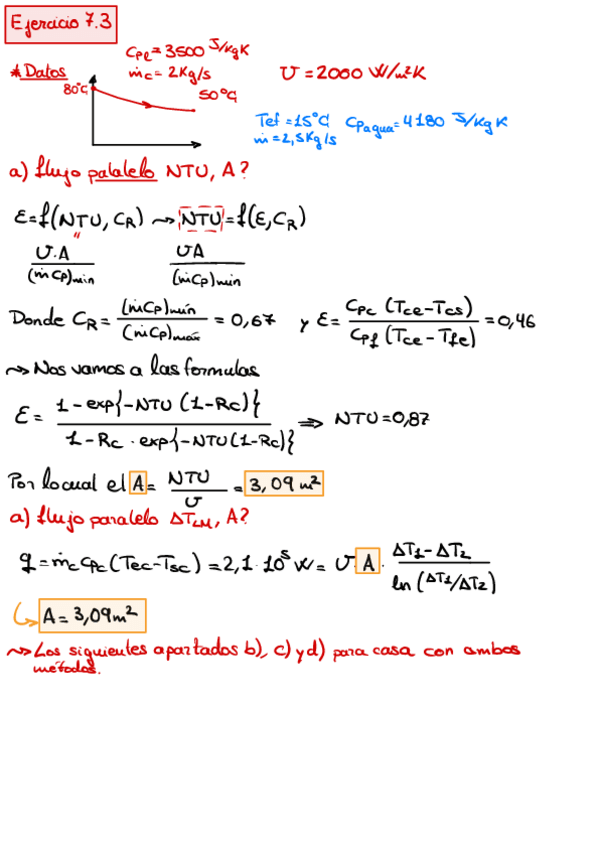 Ejercicio 7.3
* Datos
Cpe = 3500 J/kgK
ṁc = 2 Kg/s
U = 2000 W/m²K
80°C
50°C
Tef = 15°C Cpagua = 4180 J/kg K
ṁ = 2,5 Kg/s
a) flujo palalelo NTU, A?
ε = f(NTU, CR) ⇝ NTU = f(ε, CR)
"
U·A / (ṁ Cp)min
UA / (ṁ Cp)min
Donde CR = (ṁCp)mín / (ṁCp)max = 0,67 y ε = Cpc (Tce - Tcs) / Cpf (Tce - Tfe) = 0,46
⇝ Nos vamos a las formulas
ε = 1 - exp{-NTU (1-Rc)} / 1 - Rc · exp{-NTU(1-Rc)} ⇒ NTU = 0,87
Por lo cual el A = NTU / U = 3,09 m²
a) flujo paralelo ΔTLM, A?
q = ṁc Cpc (Tec - Tsc) = 2,1 · 10⁵ W = U · A · ΔT1 - ΔT2 / ln (ΔT1/ΔT2)
A = 3,09 m²
⇝ Los siguientes apartados b), c) y d) para casa con ambos
métodos.